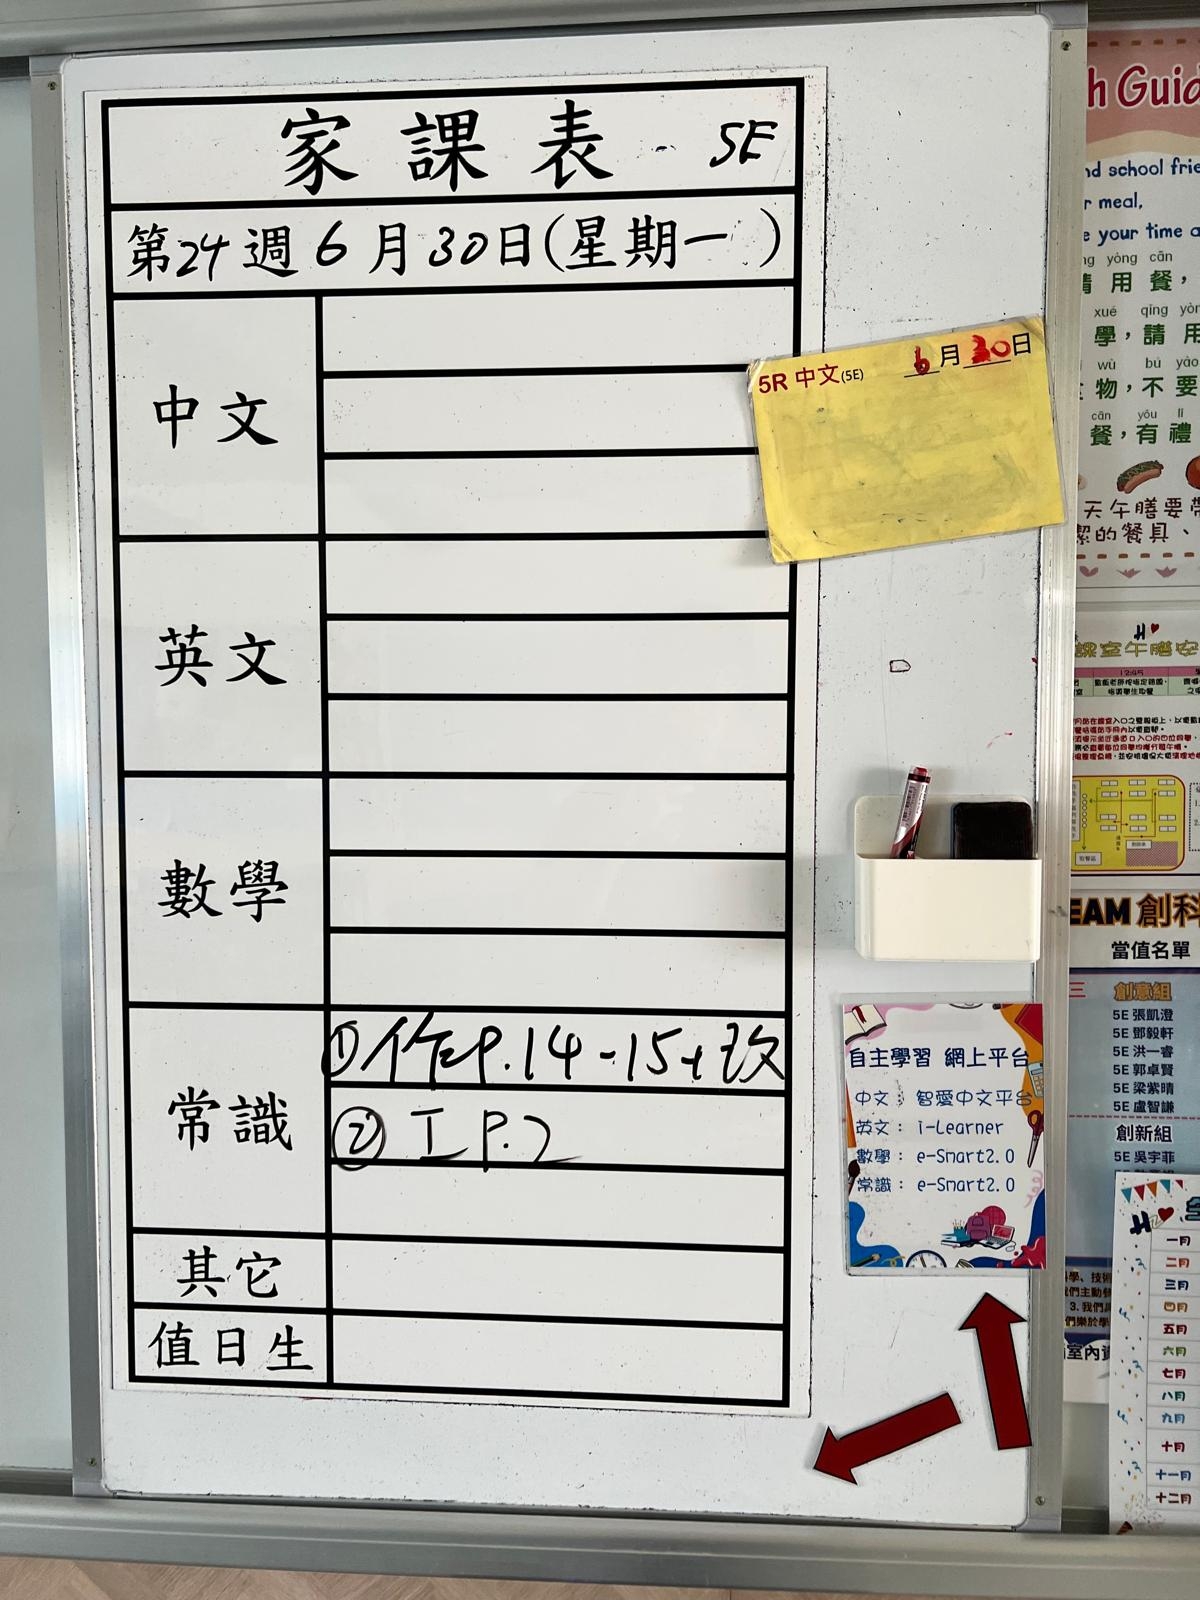 家課表 5E
第24週6月30日(星期一)
中文
英文
數學
常識
①作P.14-15+改
②工P.2
其它
值日生
5R 中文(5E) 6月30日
自主學習 網上平台
中文：智愛中文平台
英文：i-Learner
數學：e-Smart2.0
常識：e-Smart2.0
h Guid
nd school frie
r meal,
e your time a
ng yòng cān
請用餐，
xué qīng yòn
學，請用
wù bú yào
物，不要
cān yǒu lǐ
餐，有禮
天午膳要帶
潔的餐具、
課室午膳安
12:45
EAM 創科
當值名單
創意組
5E 張凱澄
5E 鄧毅軒
5E 洪一睿
5E 郭卓賢
5E 梁紫晴
5E 盧智謙
創新組
5E 吳宇菲
學、技術
們主動參
3. 我們
們樂於學
室內
一月
二月
三月
四月
五月
六月
七月
八月
九月
十月
十一月
十二月